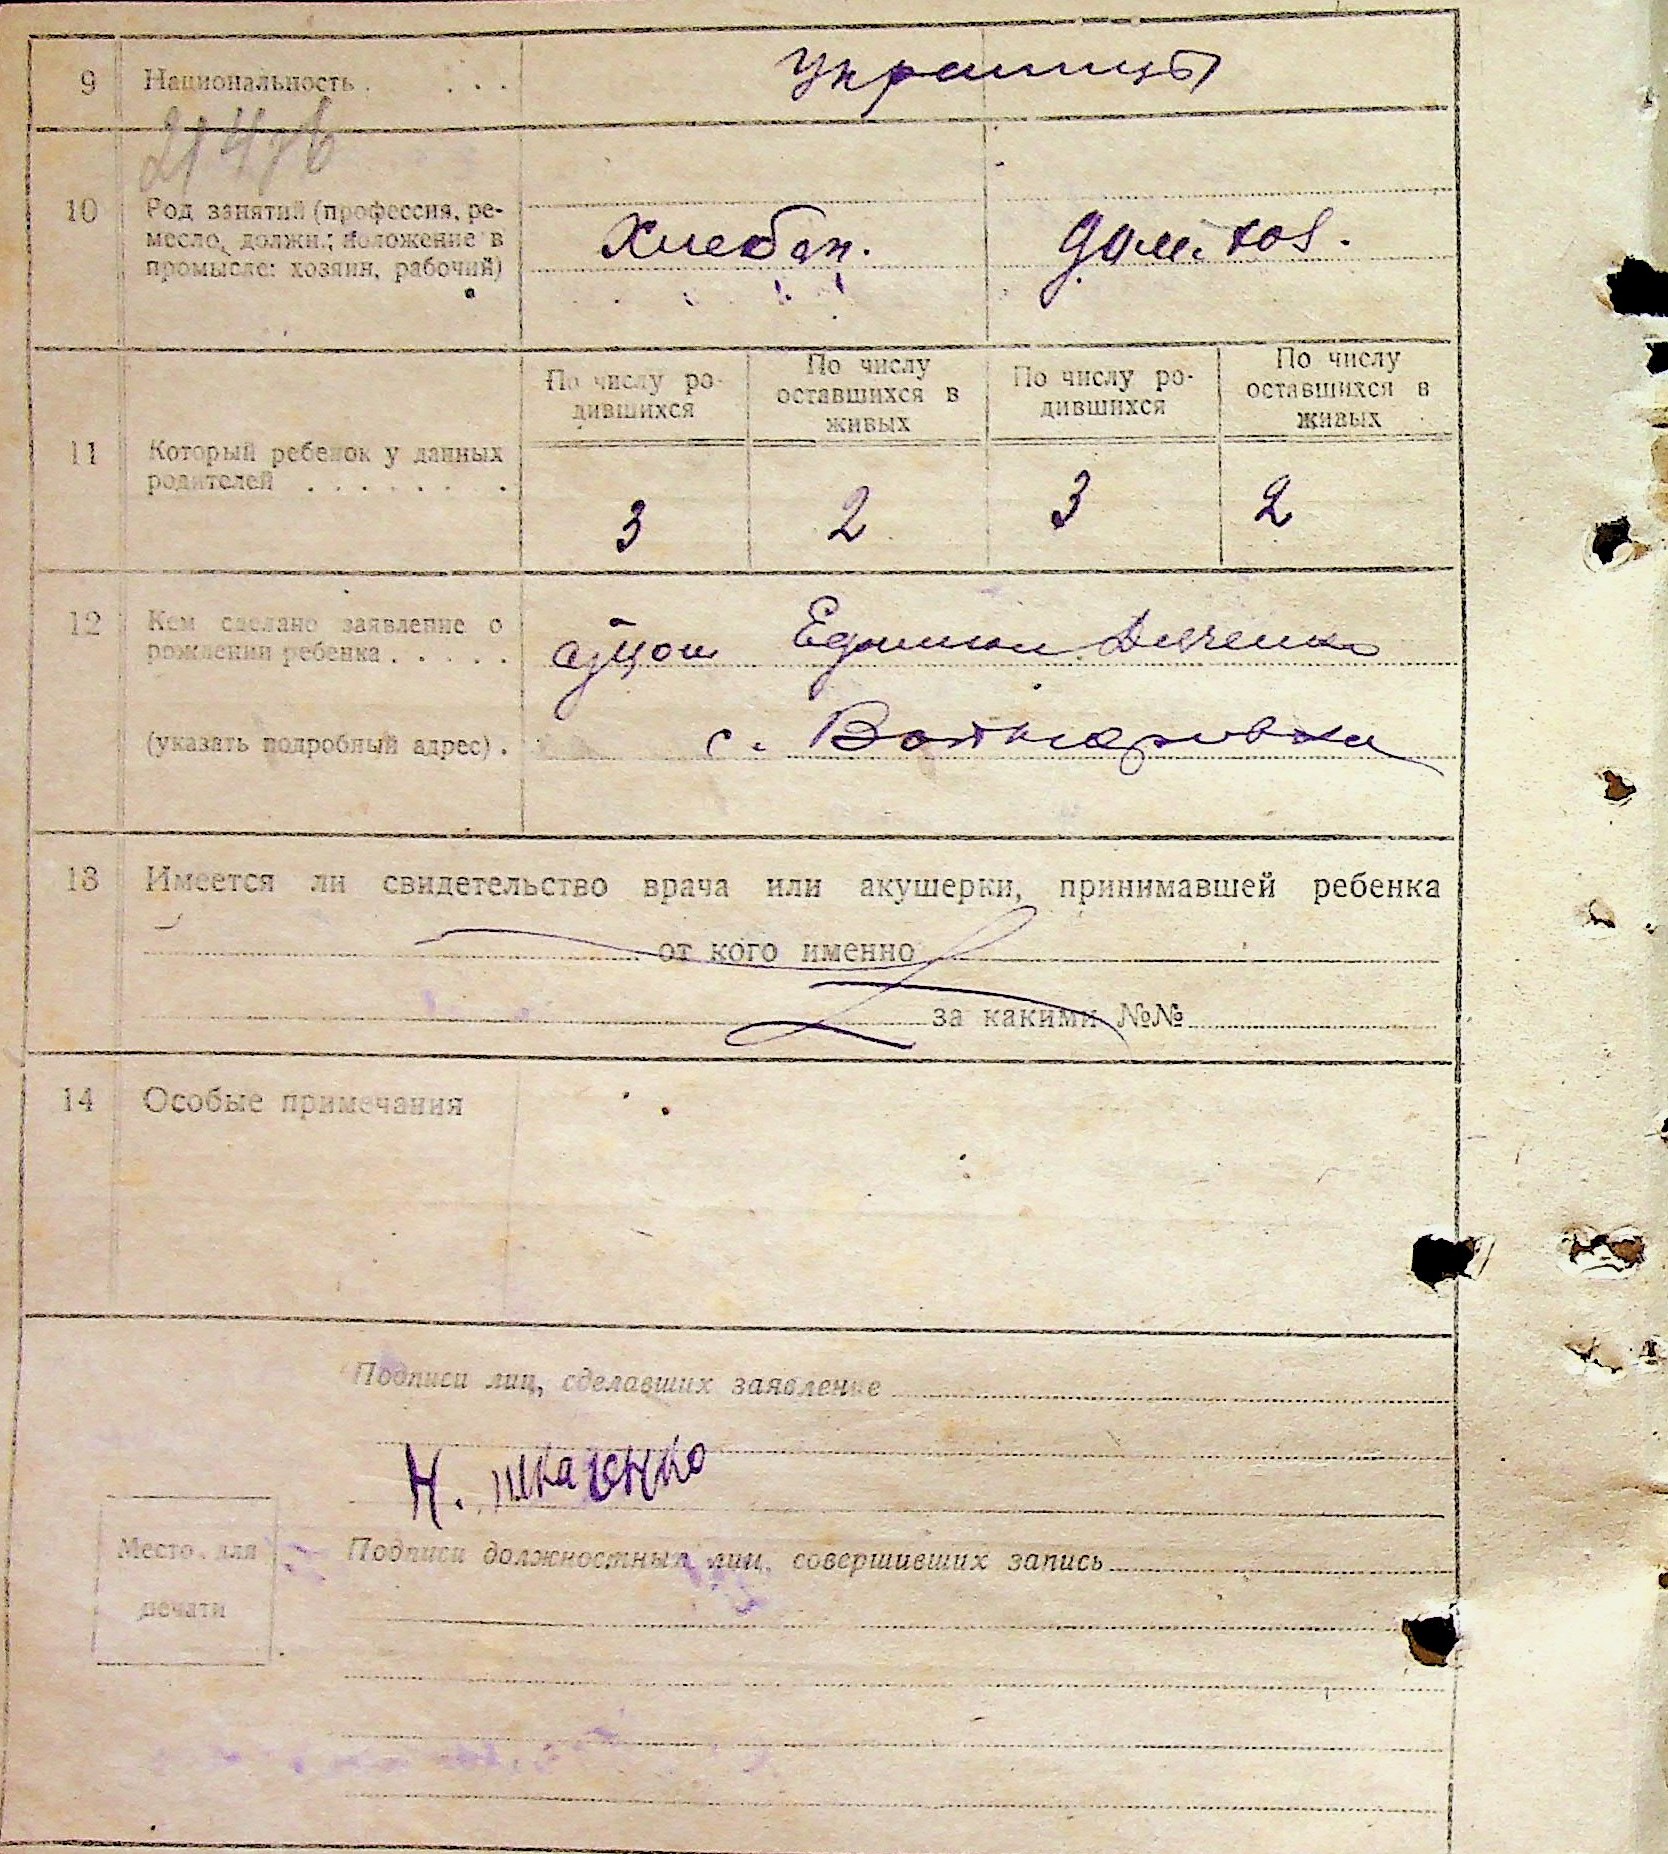 9 Национальность . . . . украинцы
214
10 Род занятий (профессия, ре-
месло, должн.; положение в
промысле: хозяин, рабочий)
Хлебоп. Дом. хоз.
11 Который ребенок у данных
родителей . . . . . . .
По числу ро-
дившихся
По числу
оставшихся в
живых
По числу ро-
дившихся
По числу
оставшихся в
живых
3 2 3 2
12 Кем сделано заявление о
рождении ребенка . . . . .
отцом
(указать подробный адрес) .
с.
13 Имеется ли свидетельство врача или акушерки, принимавшей ребенка
от кого именно
за какими №№
14 Особые примечания
Подписи лиц, сделавших заявление
Н.
Место для
печати
Подписи должностных лиц, совершивших запись